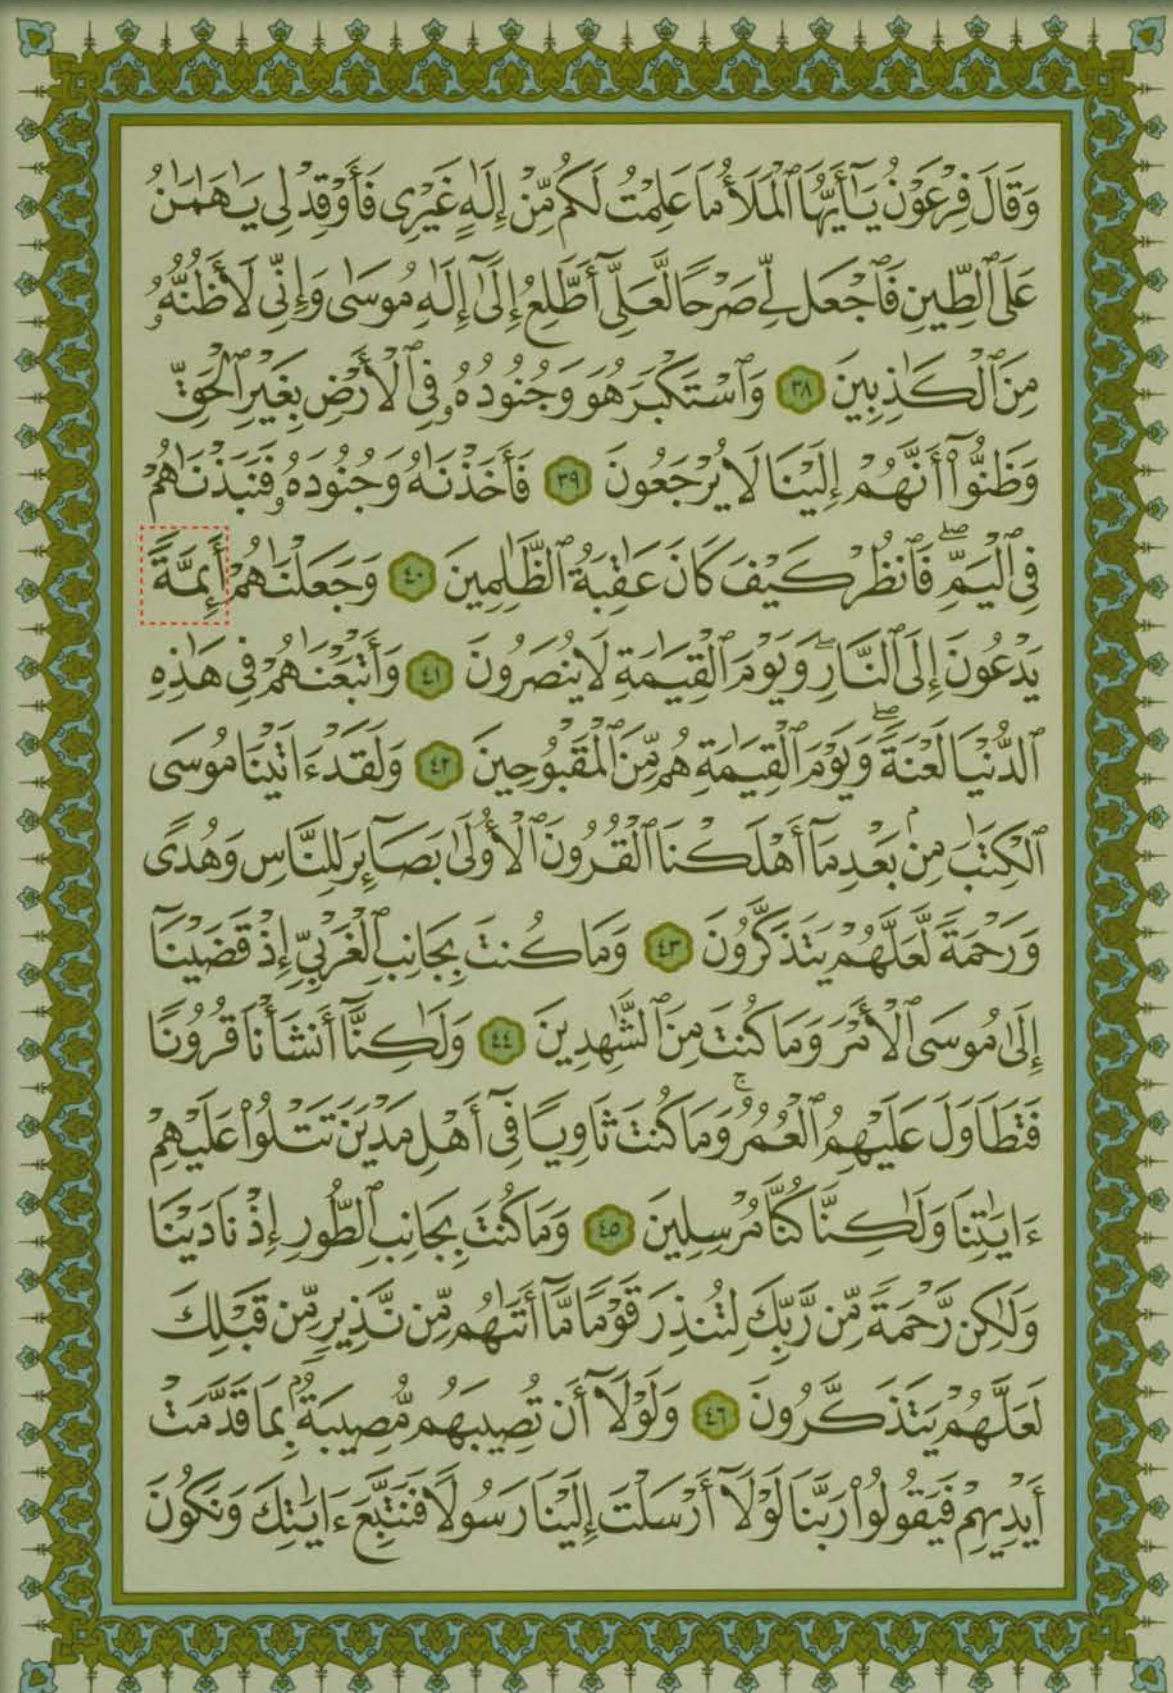 وَقَالَ فِرْعَوْنُ يَٰٓأَيُّهَا ٱلْمَلَأُ مَا عَلِمْتُ لَكُم مِّنْ إِلَٰهٍ غَيْرِى فَأَوْقِدْ لِى يَٰهَٰمَٰنُ
عَلَى ٱلطِّينِ فَٱجْعَل لِّى صَرْحًا لَّعَلِّىٓ أَطَّلِعُ إِلَىٰٓ إِلَٰهِ مُوسَىٰ وَإِنِّى لَأَظُنُّهُۥ
مِنَ ٱلْكَٰذِبِينَ ٣٨ وَٱسْتَكْبَرَ هُوَ وَجُنُودُهُۥ فِى ٱلْأَرْضِ بِغَيْرِ ٱلْحَقِّ
وَظَنُّوٓا۟ أَنَّهُمْ إِلَيْنَا لَا يُرْجَعُونَ ٣٩ فَأَخَذْنَٰهُ وَجُنُودَهُۥ فَنَبَذْنَٰهُمْ
فِى ٱلْيَمِّ ۖ فَٱنظُرْ كَيْفَ كَانَ عَٰقِبَةُ ٱلظَّٰلِمِينَ ٤٠ وَجَعَلْنَٰهُمْ أَئِمَّةً
يَدْعُونَ إِلَى ٱلنَّارِ ۖ وَيَوْمَ ٱلْقِيَٰمَةِ لَا يُنصَرُونَ ٤١ وَأَتْبَعْنَٰهُمْ فِى هَٰذِهِ
ٱلدُّنْيَا لَعْنَةً ۖ وَيَوْمَ ٱلْقِيَٰمَةِ هُم مِّنَ ٱلْمَقْبُوحِينَ ٤٢ وَلَقَدْ ءَاتَيْنَا مُوسَى
ٱلْكِتَٰبَ مِنۢ بَعْدِ مَآ أَهْلَكْنَا ٱلْقُرُونَ ٱلْأُولَىٰ بَصَآئِرَ لِلنَّاسِ وَهُدًى
وَرَحْمَةً لَّعَلَّهُمْ يَتَذَكَّرُونَ ٤٣ وَمَا كُنتَ بِجَانِبِ ٱلْغَرْبِىِّ إِذْ قَضَيْنَآ
إِلَىٰ مُوسَى ٱلْأَمْرَ وَمَا كُنتَ مِنَ ٱلشَّٰهِدِينَ ٤٤ وَلَٰكِنَّآ أَنشَأْنَا قُرُونًا
فَتَطَاوَلَ عَلَيْهِمُ ٱلْعُمُرُ ۚ وَمَا كُنتَ ثَاوِيًا فِىٓ أَهْلِ مَدْيَنَ تَتْلُوا۟ عَلَيْهِمْ
ءَايَٰتِنَا وَلَٰكِنَّا كُنَّا مُرْسِلِينَ ٤٥ وَمَا كُنتَ بِجَانِبِ ٱلطُّورِ إِذْ نَادَيْنَا
وَلَٰكِن رَّحْمَةً مِّن رَّبِّكَ لِتُنذِرَ قَوْمًا مَّآ أَتَىٰهُم مِّن نَّذِيرٍ مِّن قَبْلِكَ
لَعَلَّهُمْ يَتَذَكَّرُونَ ٤٦ وَلَوْلَآ أَن تُصِيبَهُم مُّصِيبَةٌۢ بِمَا قَدَّمَتْ
أَيْدِيهِمْ فَيَقُولُوا۟ رَبَّنَا لَوْلَآ أَرْسَلْتَ إِلَيْنَا رَسُولًا فَنَتَّبِعَ ءَايَٰتِكَ وَنَكُونَ